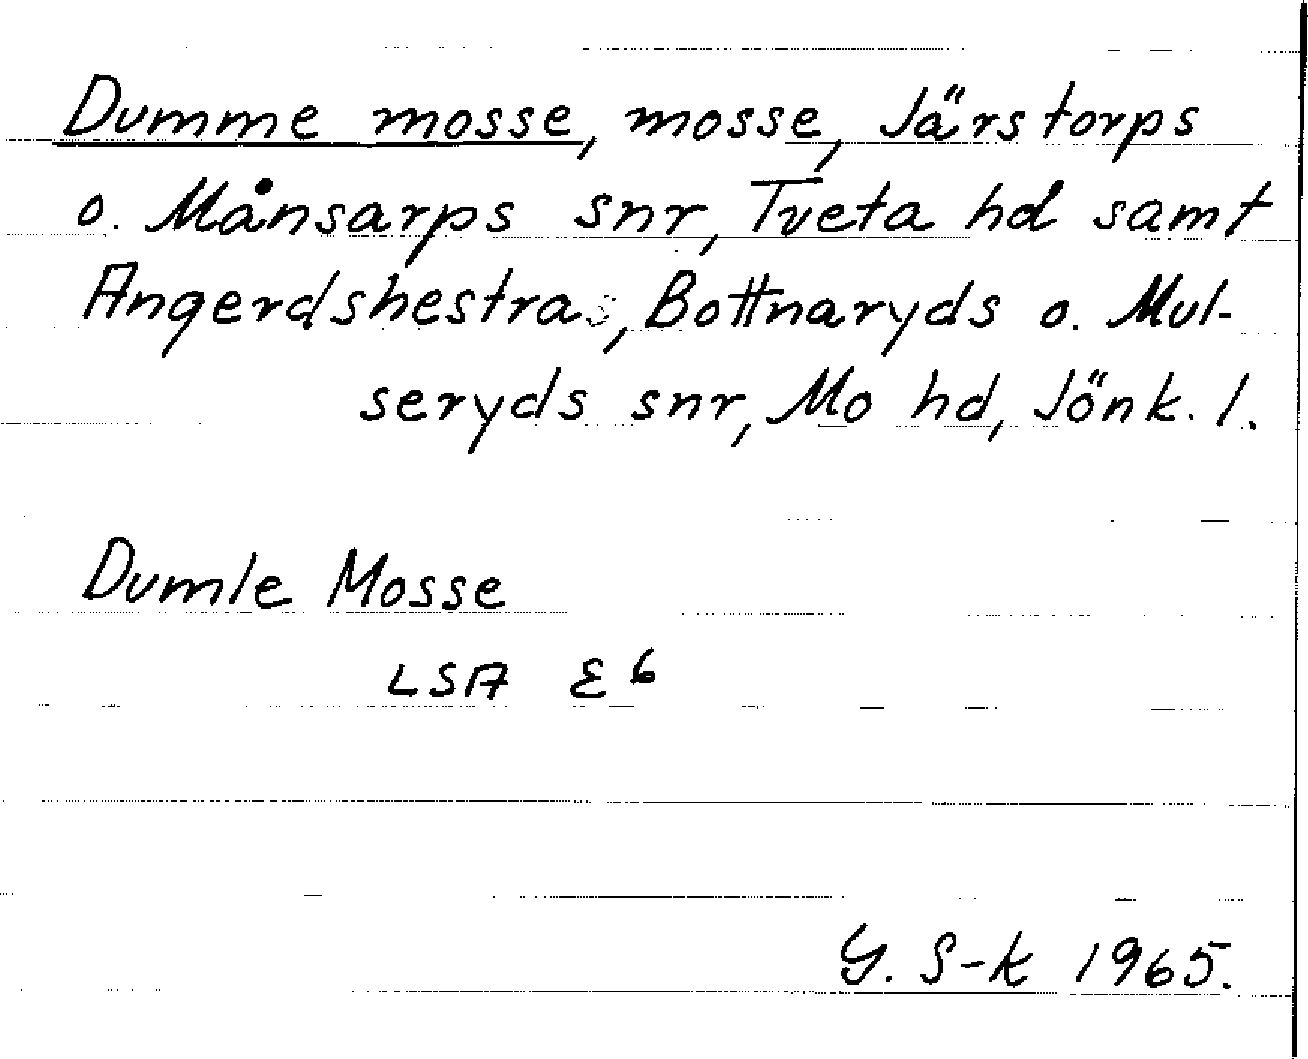 Dumme mosse, mosse, Järstorps
o. Månsarps snr, Tveta hd samt
Angerdshestra, Bottnaryds o. Mul-
seryds snr, Mo hd, Jönk. l.
Dumle Mosse
LSA E6
G. S-k 1965.